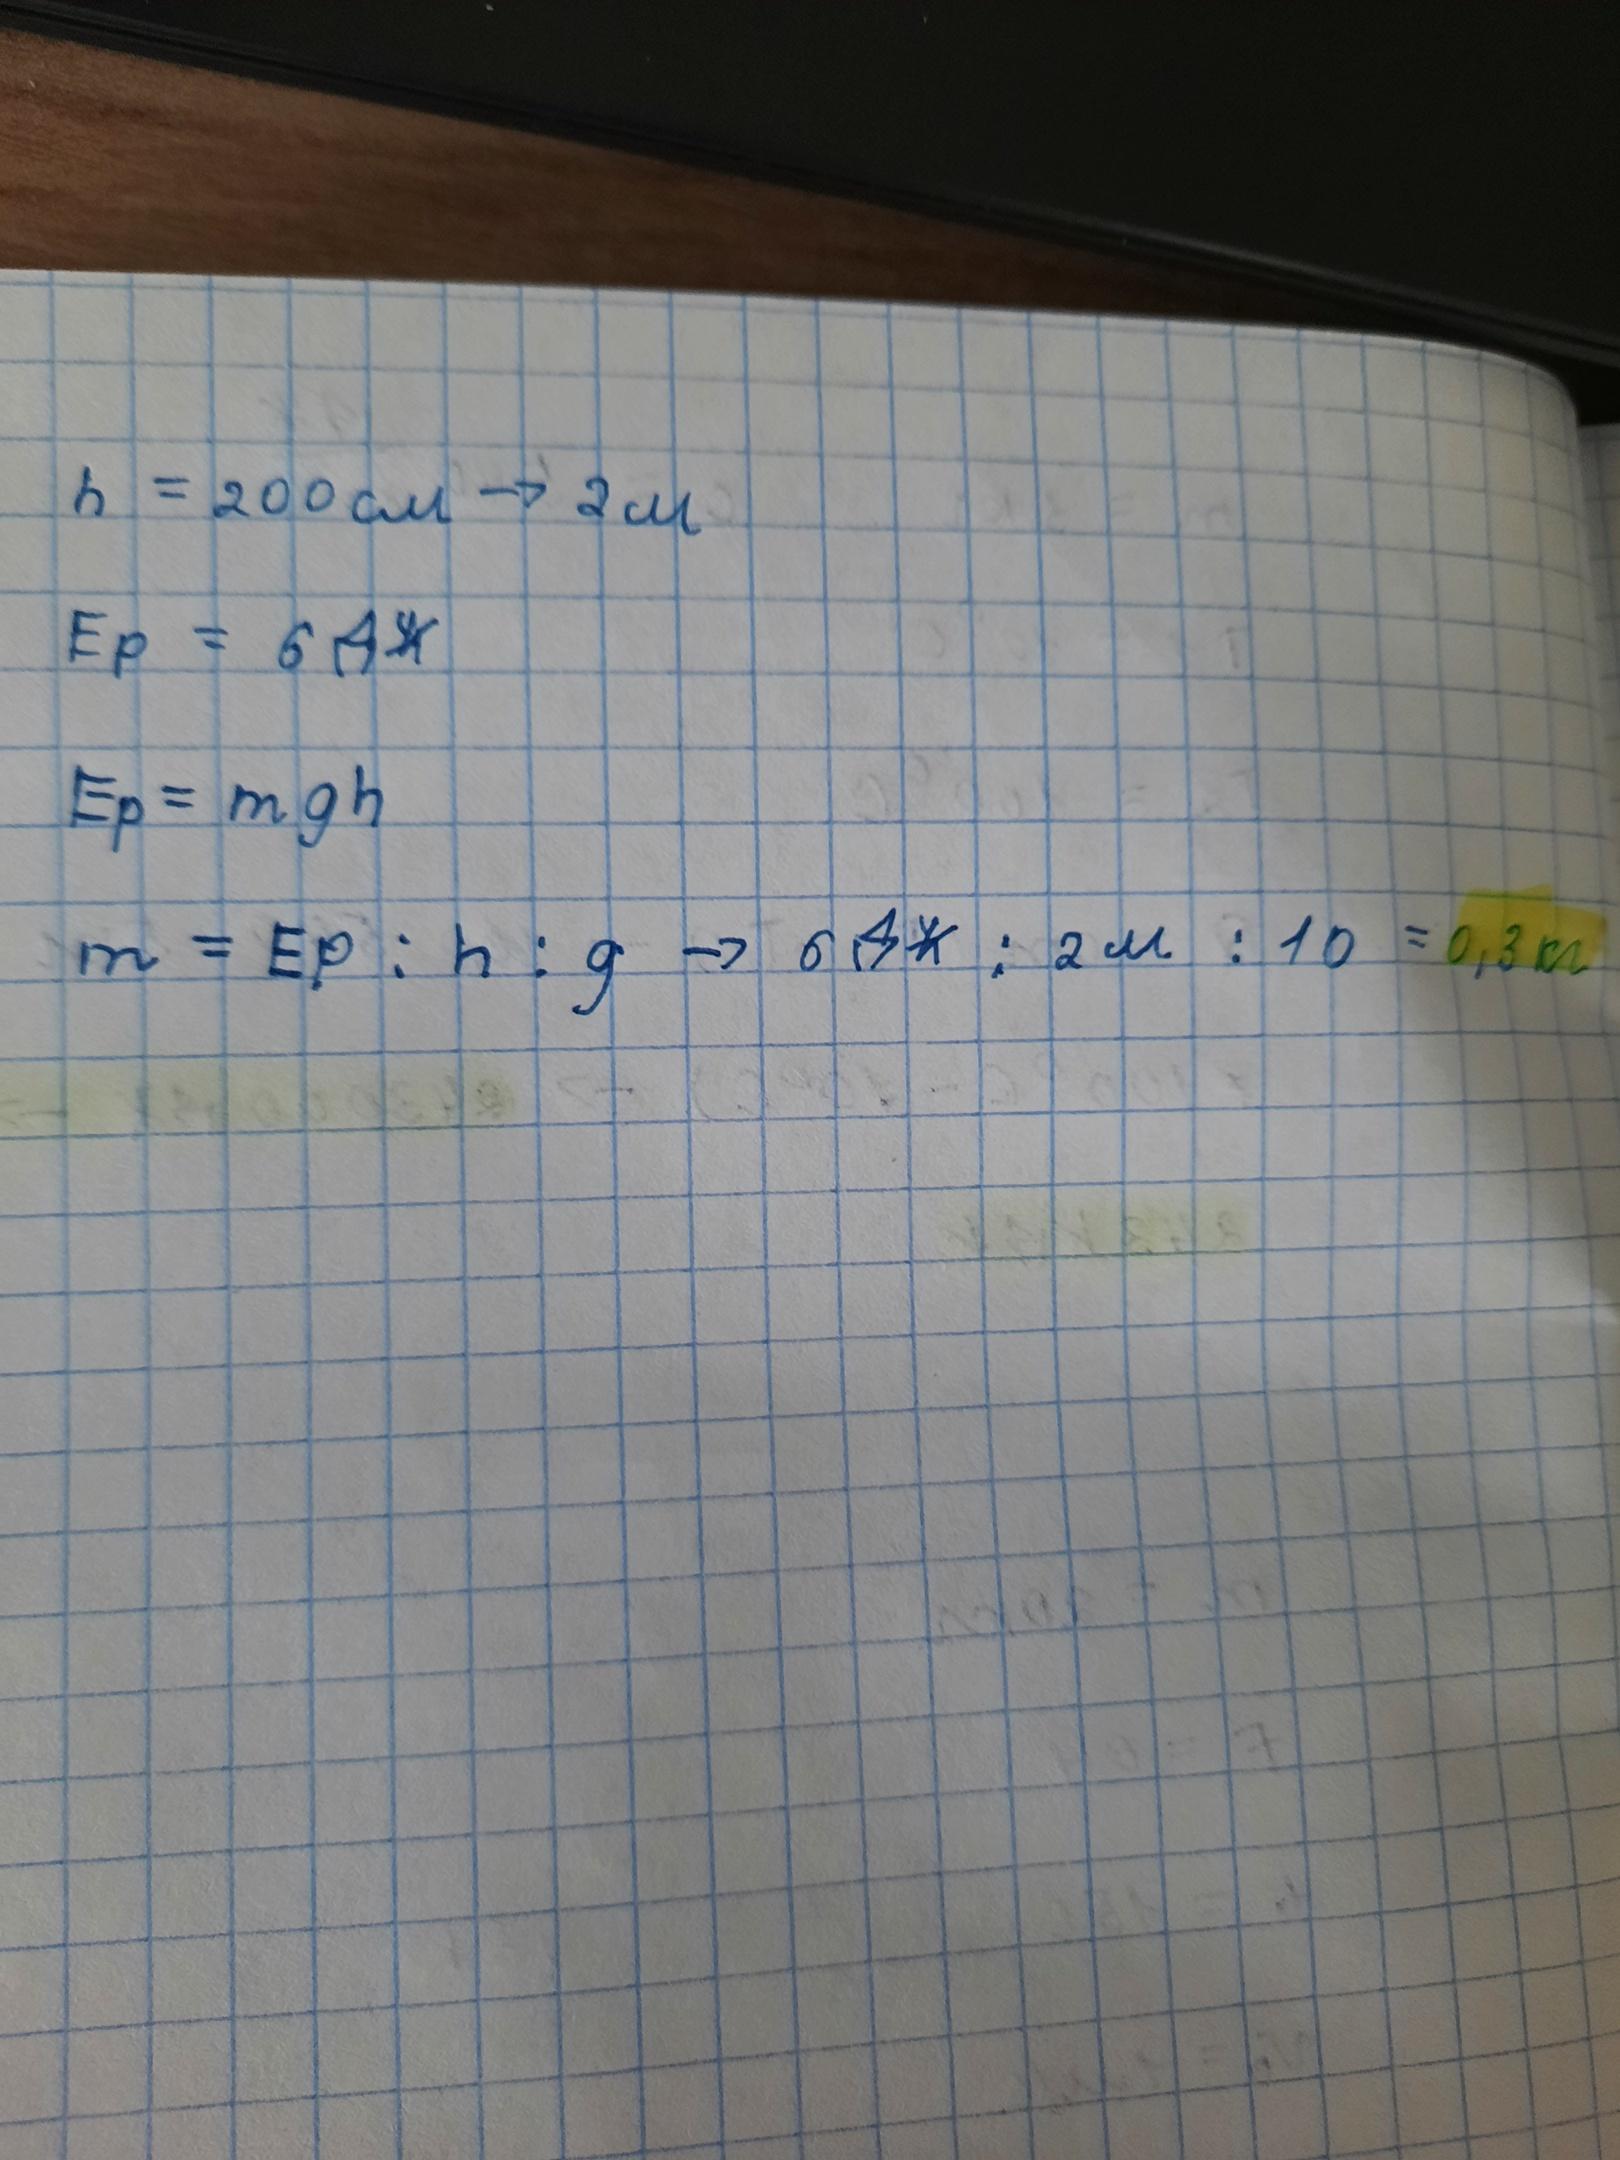 h = 200 см → 2 м
Ep = 6 Дж
Ep = mgh
m = Ep : h : g → 6 Дж : 2 м : 10 = 0,3 кг